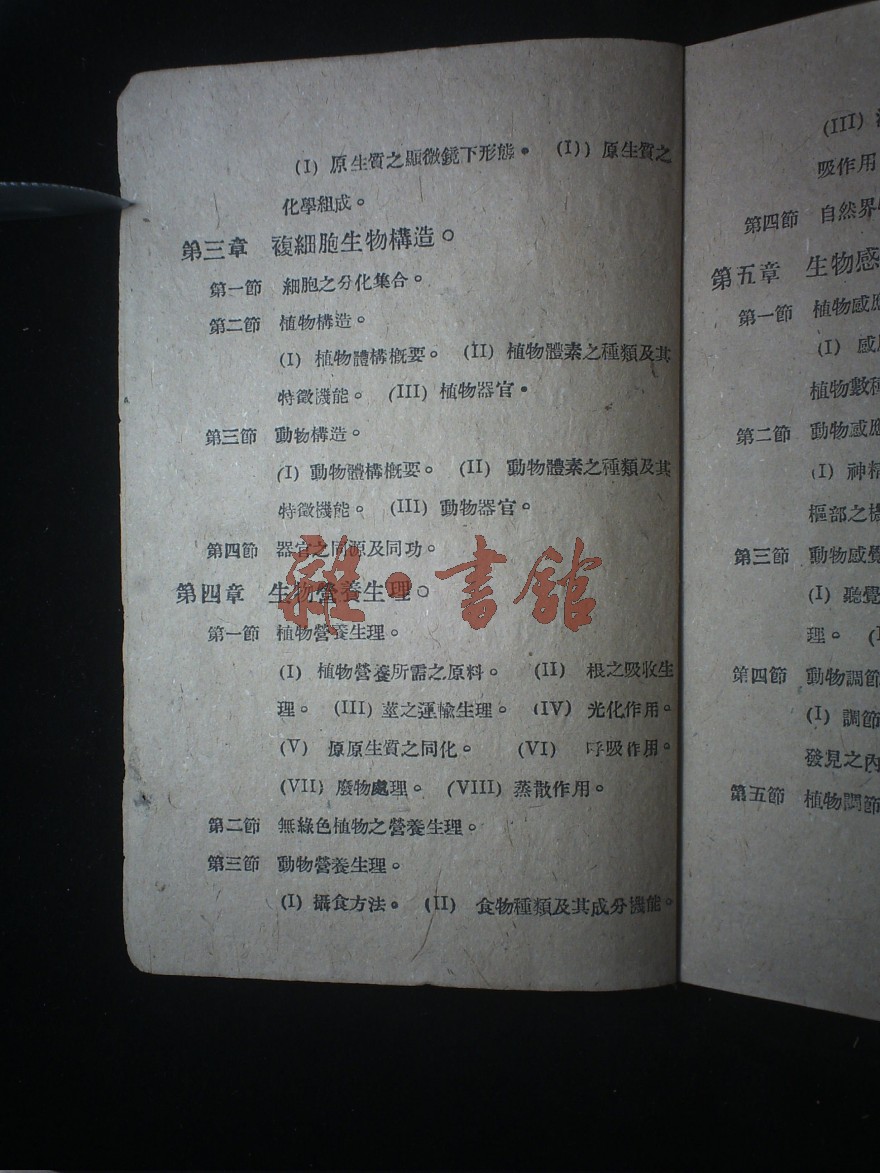 (I) 原生質之顯微鏡下形態。 (I)) 原生質之
化學組成。
第三章 複細胞生物構造。
第一節 細胞之分化集合。
第二節 植物構造。
(I) 植物體構概要。 (II) 植物體素之種類及其
特徵機能。 (III) 植物器官。
第三節 動物構造。
(I) 動物體構概要。 (II) 動物體素之種類及其
特徵機能。 (III) 動物器官。
第四節 器官之同源及同功。
第四章 生物營養生理。
雜·書館
第一節 植物營養生理。
(I) 植物營養所需之原料。 (II) 根之吸收生
理。 (III) 莖之運輸生理。 (IV) 光化作用。
(V) 原原生質之同化。 (VI) 呼吸作用。
(VII) 廢物處理。 (VIII) 蒸散作用。
第二節 無綠色植物之營養生理。
第三節 動物營養生理。
(I) 攝食方法。 (II) 食物種類及其成分機能。
(III)
吸作用
第四節 自然界
第五章 生物感
第一節 植物感應
(I) 感
植物數種
第二節 動物感應
(I) 神
樞部之機
第三節 動物感覺
(I) 聽覺
理。
第四節 動物調節
(I) 調節
發見之內
第五節 植物調節